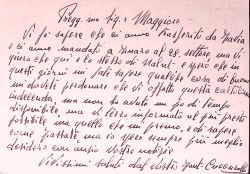 Pregg.mo Sig. Maggiore
Vi fo sapere che ci anno trasferiti da
e ci anno mandati a al 28. settore ma vi
giuro che qui è lo stesso di e spero che in
questi giorni mi fate sapere qualche cosa di buono
mi dovete perdonare che vi offetto questa cartolina
indecenda, ma non ho avuto un po di tempo
disponibile ma vi terrò informato al più presto
possibile ma quello che mi premo, e di sapere
come passate ma io spero sempre pur meglio
desidero con ansio vostre notizie
Vidissimi saluti dal vostro